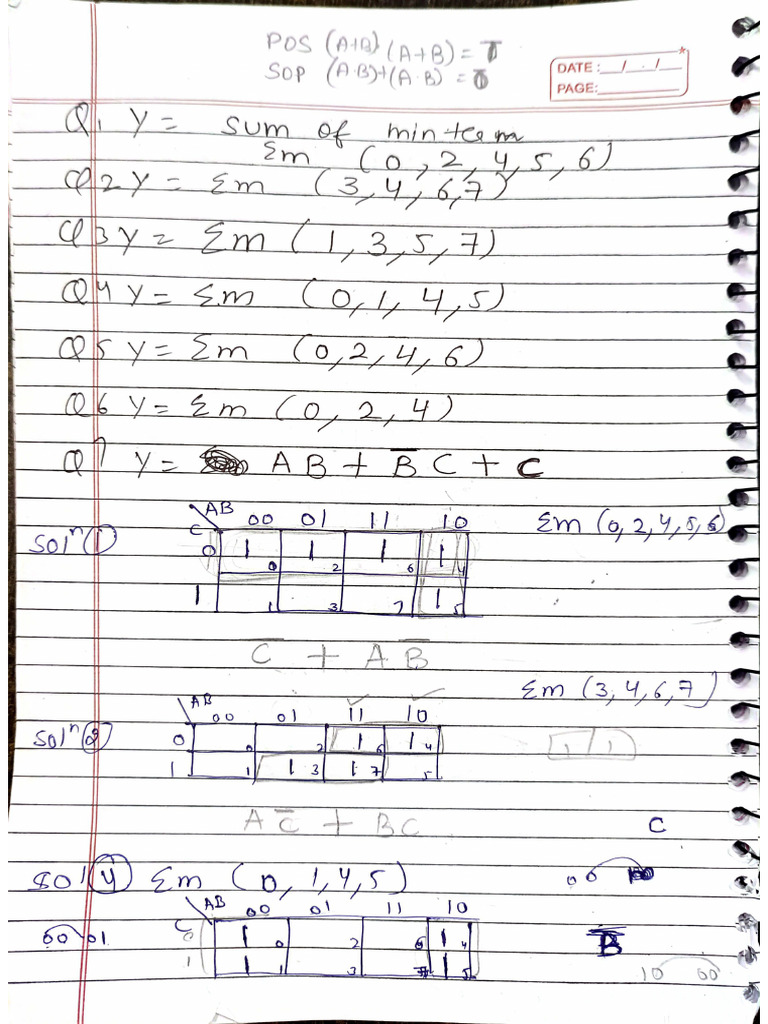 POS (A+B) (A+B) = 1
SOP (A·B)+(A·B) = 0
DATE: __/__/__
PAGE:
Q1 Y = sum of minterm
Σm (0, 2, 4, 5, 6)
Q2 Y = Σm (3, 4, 6, 7)
Q3 Y = Σm (1, 3, 5, 7)
Q4 Y = Σm (0, 1, 4, 5)
Q5 Y = Σm (0, 2, 4, 6)
Q6 Y = Σm (0, 2, 4)
Q7 Y = AB + B̅C + C
Solⁿ (1) Σm (0, 2, 4, 5, 6)
AB
C 00 01 11 10
0 1 0 1 2 1 6 1 4
1 1 3 7 1 5
C̅ + AB̅
Σm (3, 4, 6, 7)
Solⁿ (2)
AB
00 01 11 10
0 0 2 1 6 1 4
1 1 1 3 1 7 5
1 1
AC̅ + BC
C
Sol (4) Σm (0, 1, 4, 5)
00 10
AB
C 00 01 11 10
00 01
0 1 0 2 6 1 4
1 1 1 3 7 1 5
B̅
10 00